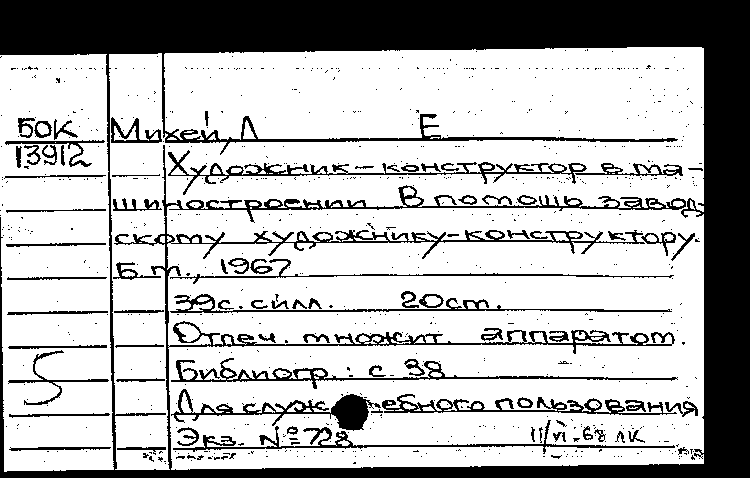 БОК Михей, Л Е
13912 Художник-конструктор в ма-
шиностроении В помощь завод-
скому художнику-конструктору.
Б.м., 1967.
39с. силл. 20см.
Отпеч. множит. аппаратом.
5 Библиогр.: с 38.
Для служебного пользования
Экз. №728 11/VI-68 ЛК